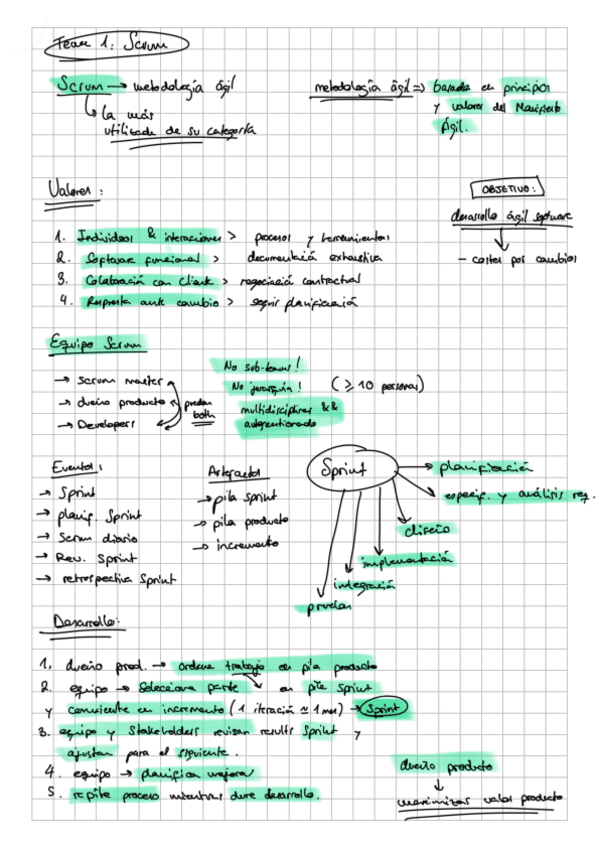 Tema 1: Scrum
Scrum → metodología ágil
↳ la más
utilizada de su categoría
metodología ágil => basada en principios
y valores del Manifiesto
Ágil.
Valores:
1. Individuos & interacciones > procesos y herramientas
2. Software funcional > documentación exhaustiva
3. Colaboración con cliente > negociación contractual
4. Respuesta ante cambio > seguir planificación
OBJETIVO:
desarrollo ágil software
↓
- costes por cambios
Equipo Scrum
→ scrum master
→ dueño producto
→ Developers
pueden
both
No sub-teams!
No jerarquía!
multidisciplinar &&
autogestionado
(≥ 10 personas)
Eventos:
→ Sprint
→ planif. Sprint
→ Scrum diario
→ Rev. Sprint
→ retrospectiva Sprint
Artefactos
→ pila sprint
→ pila producto
→ incremento
Sprint
→ planificación
especif. y análisis req.
diseño
implementación
integración
pruebas
Desarrollo:
1. dueño prod. → ordena trabajo en pila producto
2. equipo → selecciona parte en pila sprint
y convierte en incremento (1 iteración ≈ 1 mes) → Sprint
3. equipo y stakeholders revisan results Sprint y
ajustan para el siguiente.
4. equipo → planifican mejora
5. repite proceso mientras dure desarrollo.
dueño producto
↓
maximizar valor producto